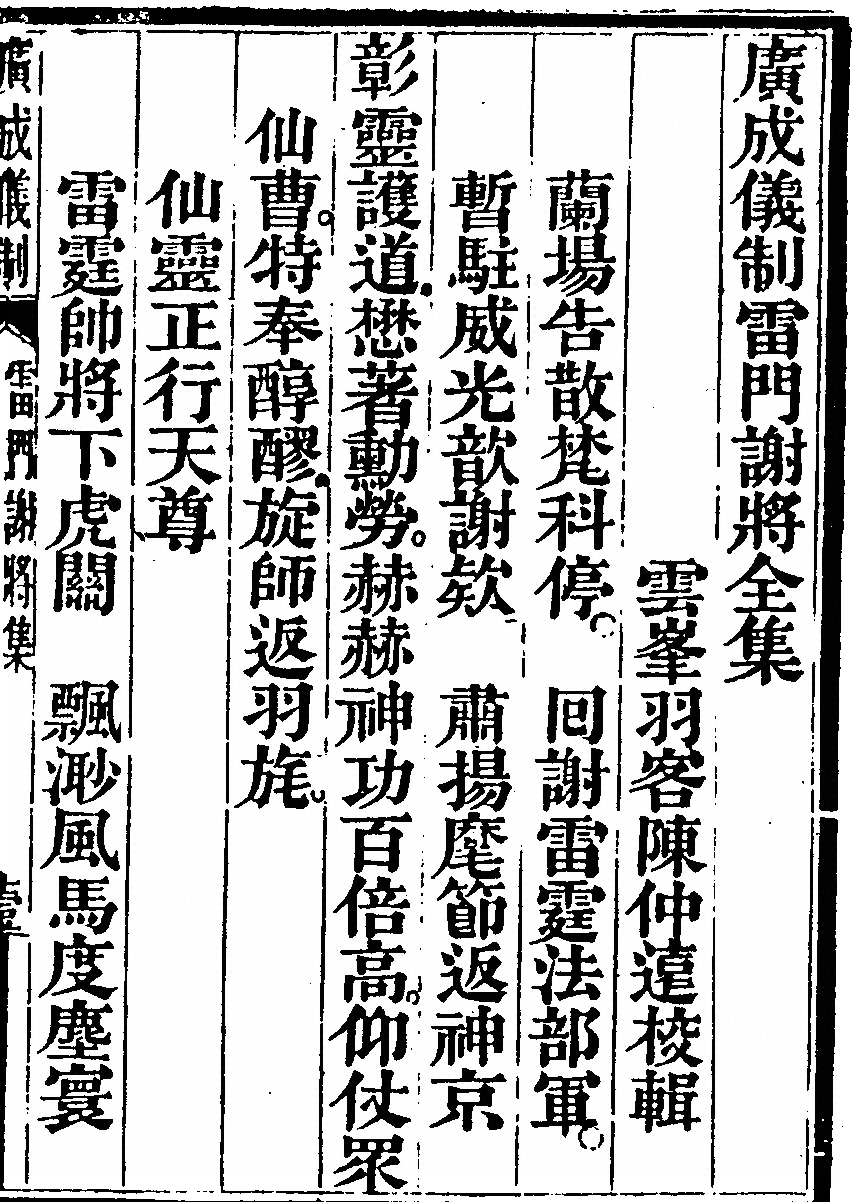 廣成儀制雷門謝將全集
雲峯羽客陳仲遠校輯
蘭場告散梵科停。 回謝雷霆法部軍。
暫駐威光歆謝欵 肅揚麾節返神京
彰靈護道懋著勳勞。赫赫神功百倍高。仰仗眾
仙曹。特奉醇醪旋師返羽旄。
仙靈正行天尊
雷霆帥將下虎關 飄渺風馬度塵寰
廣成儀制 雷門謝將集 壹